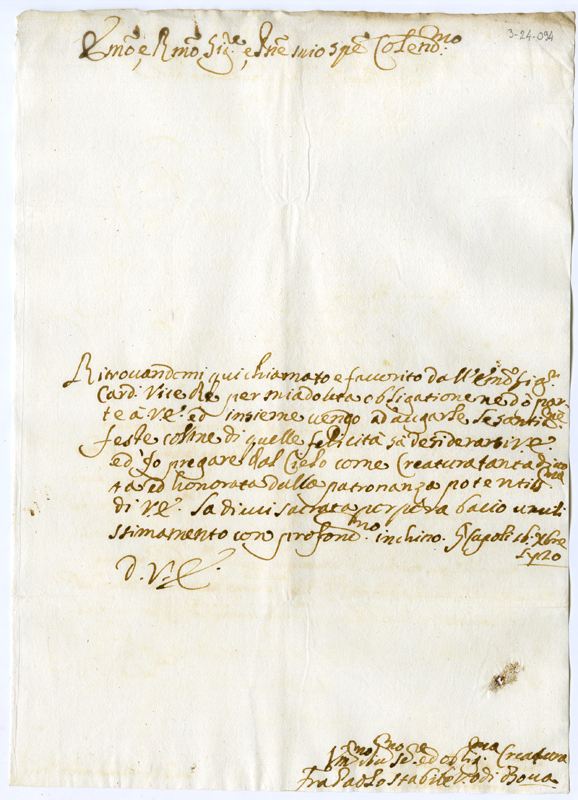 3-24-094
Emo e Rmo Sig.e e Pne mio Spe Colend.mo
Ritrovandomi qui chiamato e favorito dall'Emo Sig.
Card. Vice Re per mia dovuta obligatione ne dò par-
te à V.E. ed insieme vengo ad augurarle le santissime
feste colme di quelle felicità sà desiderarsi V.E.
ed Io pregare dal Cielo come Creatura tanta divo
ta ed honorata dalla patronanza potentis.ma
di V.E. La di cui sacrata porpora bacio umili-
ssimamente con profond.mo inchino. Napoli 16 Xbre
D. V. E.
Creatura
Fra Paolo Stabile di Bova